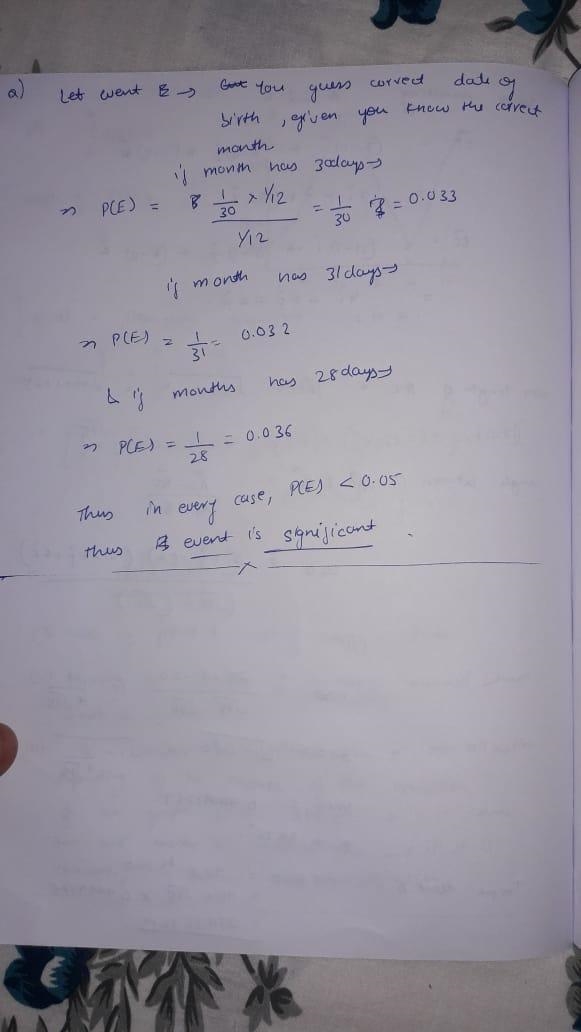 a) Let event E → You guess correct date of
birth , given you know the correct
month
if month has 30days→
⇒ P(E) = 1/30 × 1/12 / 1/12 = 1/30 = 0.033
if month has 31days→
⇒ P(E) = 1/31 = 0.032
& if months has 28days→
⇒ P(E) = 1/28 = 0.036
Thus in every case, P(E) < 0.05
thus event is significant .